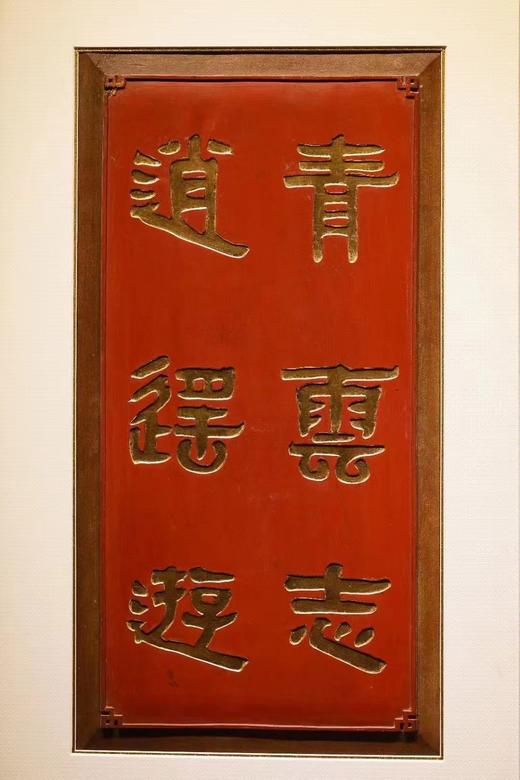 青雲志
逍遥遊